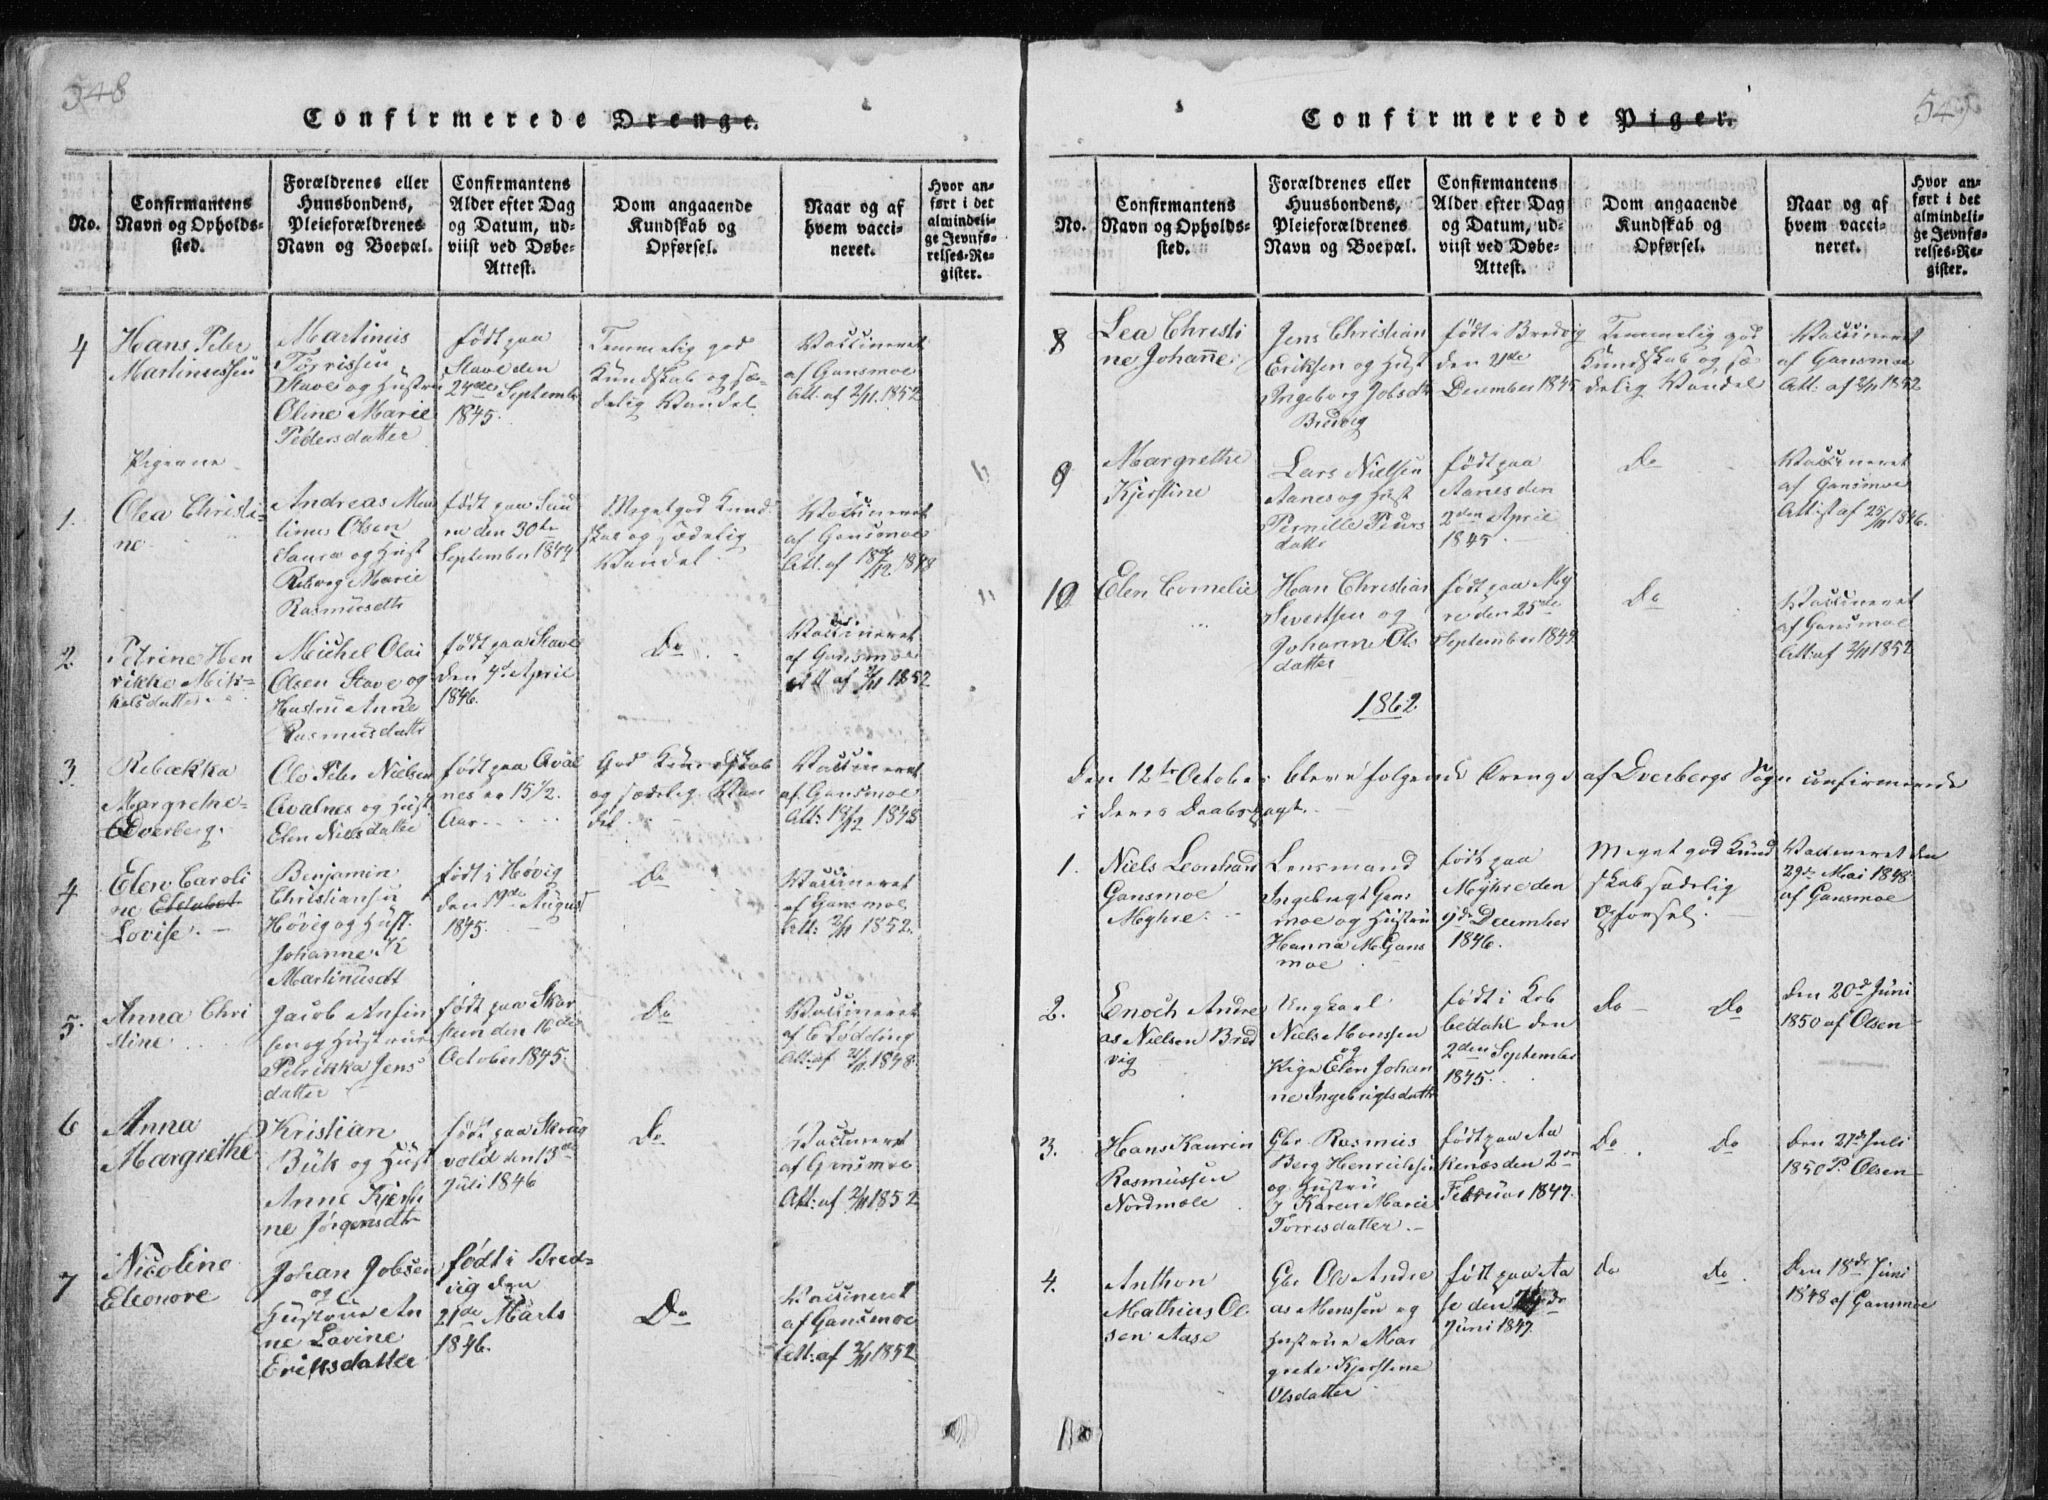 548
Confirmerede Drenge.
No.
Confirmantens
Navn og Opholds-
sted.
Forældrenes eller
Huusbondens,
Pleieforældrenes
Navn og Boepæl.
Confirmantens
Alder efter Dag
og Datum, ud-
viist ved Døbe-
Attest.
Dom angaaende
Kundskab og
Opførsel.
Naar og af
hvem vacci-
neret.
Hvor an-
ført i det
almindeli-
ge Jevnfø-
relses-Re-
gister.
4
Hans Peter
Martinussen
Martinus
Torrissen
Stave og Hustru
Oline Marie
Pedersdatter
født paa
Stave den
24de September
1845.
Temmelig god
Kundskab og sæ-
delig Vandel
Vaccineret
af Gansmoe
Att: af 2/11 1852
Pigerne
1.
Olea Christi-
ne
Andreas Mar
tinus Olsen
og Hust
Marie
Rasmusdtr
født paa
den 30te
September 1844
Meget god Kund
skab og sædelig
Vandel
Vaccineret
af Gansmoe
Att. af 18/12 1848
2.
Petrine Hen
rikke Mik-
kelsdatter
Michel Olai
Olsen Stave og
Hustru Anne
Rasmusdatter
født paa Stave
den 4de April
1846.
Do
Vaccineret
af Gansmoe
Att af 2/11 1852
3.
Rebækka
Margrethe
Dverberg.
Ole Peter Nielsen
Avalnes og Hust
Elen Nielsdatter
født paa Aval
nes er 15 1/2
Aar
God Kundskab
og sædelig Van
del
Vaccineret
af Gansmoe
Att: 1848
4
Elen Caroli
ne Elisabet
Lovise.
Benjamin
Christiansen
Høvig og Hust.
Johanne K
Martinusdt
født i Høvig
den 19de August
1845.
Do
Vaccineret
af Gansmoe
Att: 2/11 1852.
5.
Anna Chri
stine
Jacob Anfin
sen og Hustrue
Petrikka Jens
datter
født paa Skar
stein den 16de
October 1845.
Do
Vaccineret
af E Lodding
Att: af 1848.
6
Anna
Margrethe
Kristian
Bük og Hust
Anne Kjersti
ne Jørgensdtr
født paa Skrag
vold den 13de
Juli 1846
Do
Vaccineret
af Gansmoe
Att: af 2/11 1852
7
Nicoline
Eleonore
Johan Jobsen
og
Hustrue An
ne Lavine
Eriksdatter
født i Bred-
vig den
21de Marts
1846.
Do
Vaccineret
af Gansmoe
Att: af 2/11 1852
549
Confirmerede Piger.
No.
Confirmantens
Navn og Opholds-
sted.
Forældrenes eller
Huusbondens,
Pleieforældrenes
Navn og Boepæl.
Confirmantens
Alder efter Dag
og Datum, ud-
viist ved Døbe-
Attest.
Dom angaaende
Kundskab og
Opførsel.
Naar og af
hvem vacci-
neret.
Hvor an-
ført i det
almindeli-
ge Jevnfø-
relses-Re-
gister.
8
Lea Christi
ne Johanne
Jens Christian
Eriksen og Hust
Ingeborg Jobsdtr
Bredvig
født i Bredvig
den
December 1845
Temmelig god
Kundskab og sæ
delig Vandel
Vaccineret
af Gansmoe
Att: af 2/11 1852
9
Margrethe
Kjerstine
Lars Nielsen
Aanes og Hust
Pernille Peers
datter
født paa
Aanes den
2den April
1845.
Do
Vaccineret
af Gansmoe
Attest af 25/11 1846.
10
Elen Cornelie
Han Christian
Sivertsen og
Johanne Ols
datter
født paa My
re den 25de
September 1844
Do
Vaccineret
af Gansmoe
Att: af 2/11 1852
1862.
Den 12te October bleve følgende Drenge af Dverbergs Sogn confirmerede
i deres Daabspagt.
1.
Niels Leonhard
Gansmoe
Myhre.
Lensmand
Ingebrigt Gans
moe og Hustru
Hanna M Gans
moe
født paa
Myhre den
9de December
1846.
Meget god Kund
skab sædelig
Opførsel.
Vaccineret den
29de Mai 1848
af Gansmoe
2.
Enoch Andre
as Nielsen Bred
vig
Ungkarl
Niels Monssen
og
Pige Elen Johan
ne Ingebrigtsdatter
født i Kob
bedahl den
2den September
1845.
Do Do
Den 20de Juni
1850 af Olsen
3.
Hans Kaurin
Rasmussen
Nordmæle
Gbr Rasmus
Berg Henriksen
og Hustru
Karen Marie
Torresdatter.
født paa Aa
kenæs den 2den
Februar 1847.
Do Do
Den 27de Juli
1850 P. Olsen
4.
Anthon
Mathias Ol
sen Aase
Gbr Ole Andre
as Monssen og
Hustrue Mar
grete Kjerstine
Olsdatter
født paa Aa
se den
Juni 1847.
Do Do
Den 18de Juni
1848 af Gansmoe